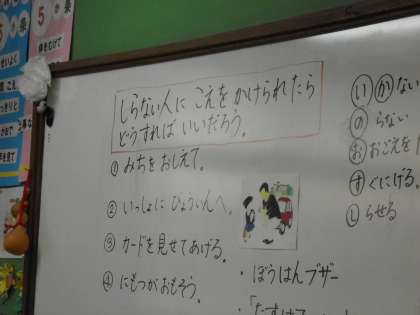 しらない人に こえを かけられたら
どうすれば いいだろう。
① みちをおしえて。
② いっしょに びょういんへ。
③ カードを見せてあげる。
④ にもつがおもそう。
・ぼうはんブザー
・「たすけて
いかない
のらない
おおごえを
すぐにげる
しらせる
5
5